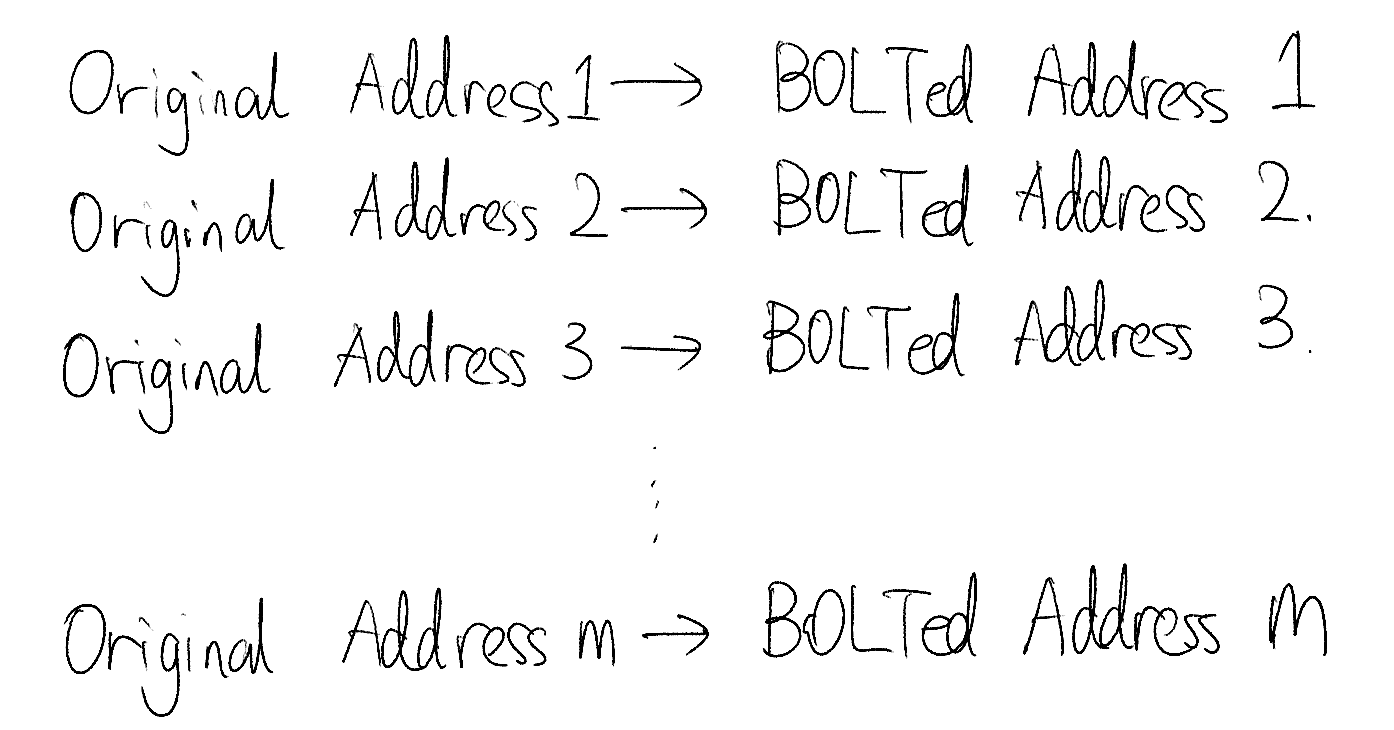 Original Address 1 → BOLTed Address 1
Original Address 2 → BOLTed Address 2.
Original Address 3 → BOLTed Address 3.
⋮
Original Address m → BOLTed Address m